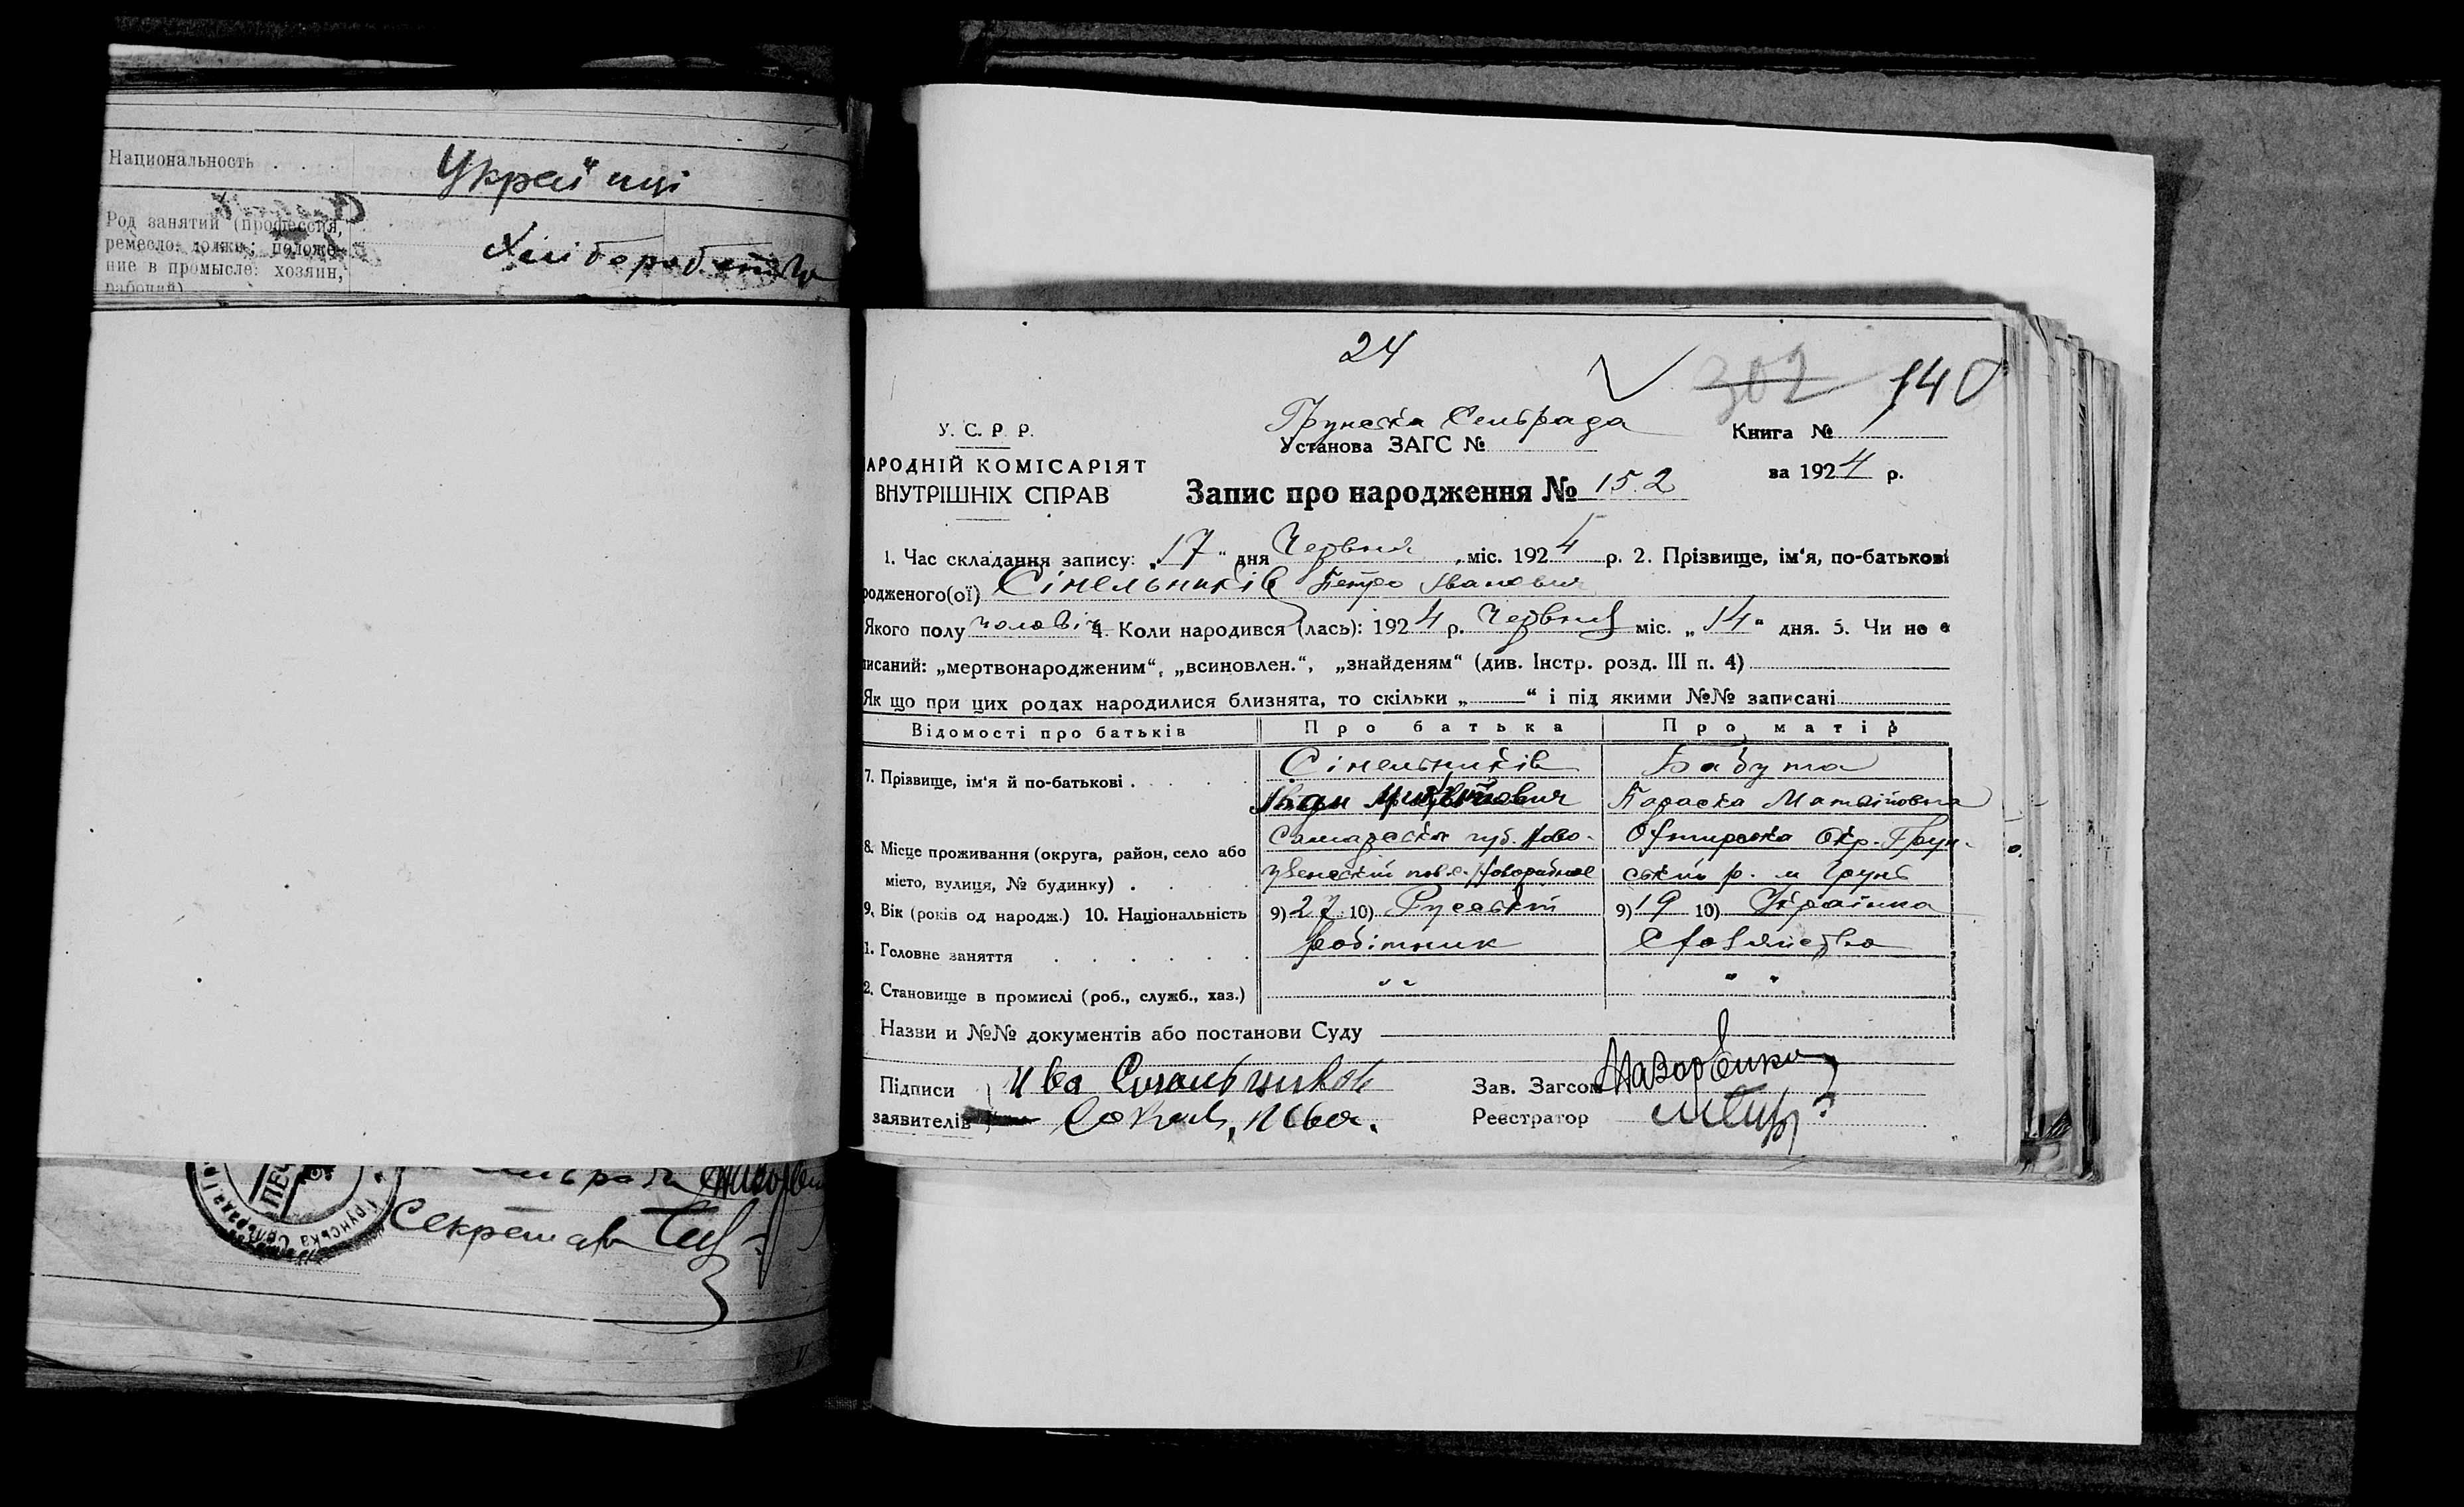 Национальность . . . Українці
Род занятий (профессия,
ремесло; должн.; положе-
ние в промысле: хозяин,
рабочий)
Хліборобство
24
302 140
Грунська Сельрада
У. С. Р. Р. Установа ЗАГС № Книга №
АРОДНІЙ КОМІСАРІЯТ за 1924 р.
ВНУТРІШНІХ СПРАВ Запис про народження № 152
1. Час складання запису: „17“ дня Червня міс. 1924 р. 2. Прізвище, ім‘я, по-батькові
родженого(ої) Сінельників Петро Іванович
Якого полу чоловіч 4. Коли народився (лась): 1924 р. Червня міс. „14“ дня. 5. Чи не є
писаний: „мертвонародженим“, „всиновлен.“, „знайденям“ (див. Інстр. розд. III п. 4)
Як що при цих родах народилися близнята, то скільки „ “ і під якими №№ записані
Відомості про батьків Про батька Про матір
7. Прізвище, ім‘я й по-батькові . Сінельників Бабута
Іван Параска Матвійовна
8. Місце проживання (округа, район, село або Самарська губ. Ново- Охтирська Окр. Грун-
місто, вулиця, № будинку) . узенський пов. ський р. м Грунь
9. Вік (років од народж.) 10. Національність 9) 27 10) Руський 9) 19 10) Українка
1. Головне заняття Робітник
2. Становище в промислі (роб., служб., хаз.) „ “ „ “
Назви и №№ документів або постанови Суду
Підписи Зав. Загсом
заявителів Реєстратор
ПЕЧ
Грунська Сельрада
Секретар